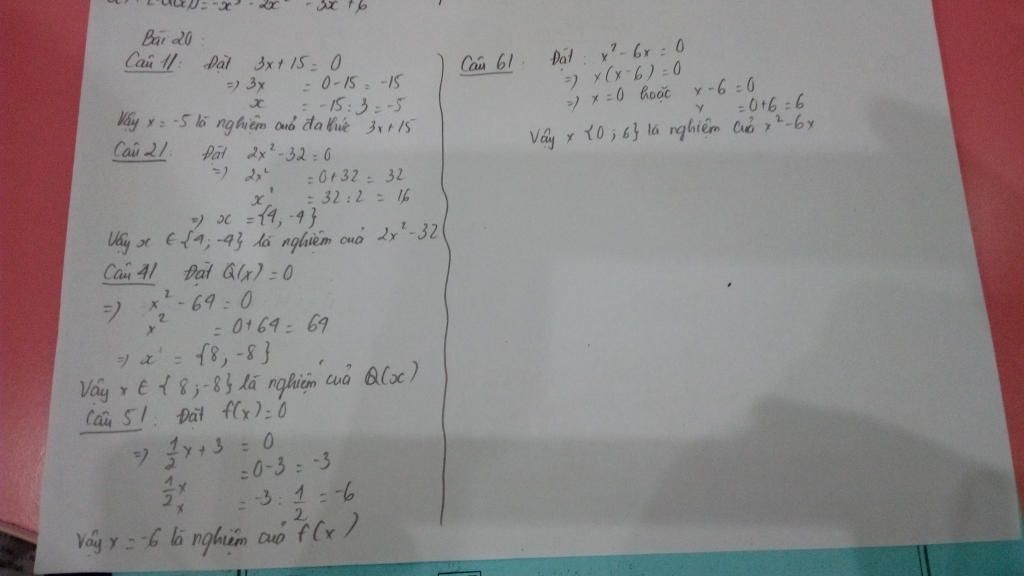 = -x³ - 2x² - 3x + 6
Bài 20:
Câu 1/: Đặt 3x + 15 = 0
=> 3x = 0 - 15 = -15
x = -15 : 3 = -5
Vậy x = -5 là nghiệm cuả đa thức 3x + 15
Câu 2/: Đặt 2x² - 32 = 0
=> 2x² = 0 + 32 = 32
x² = 32 : 2 = 16
=> x = {4, -4}
Vậy x ∈ {4; -4} là nghiệm cuả 2x² - 32
Câu 4/ Đặt Q(x) = 0
=> x² - 64 = 0
x² = 0 + 64 = 64
=> x = {8, -8}
Vậy x ∈ {8; -8} là nghiệm cuả Q(x)
Câu 5/: Đặt f(x) = 0
=> 1/2 x + 3 = 0
1/2 x = 0 - 3 = -3
x = -3 : 1/2 = -6
Vậy x = -6 là nghiệm cuả f(x)
Câu 6/: Đặt: x² - 6x = 0
=> x(x - 6) = 0
=> x = 0 hoặc x - 6 = 0
x = 0 + 6 = 6
Vậy x {0; 6} là nghiệm cuả x² - 6x